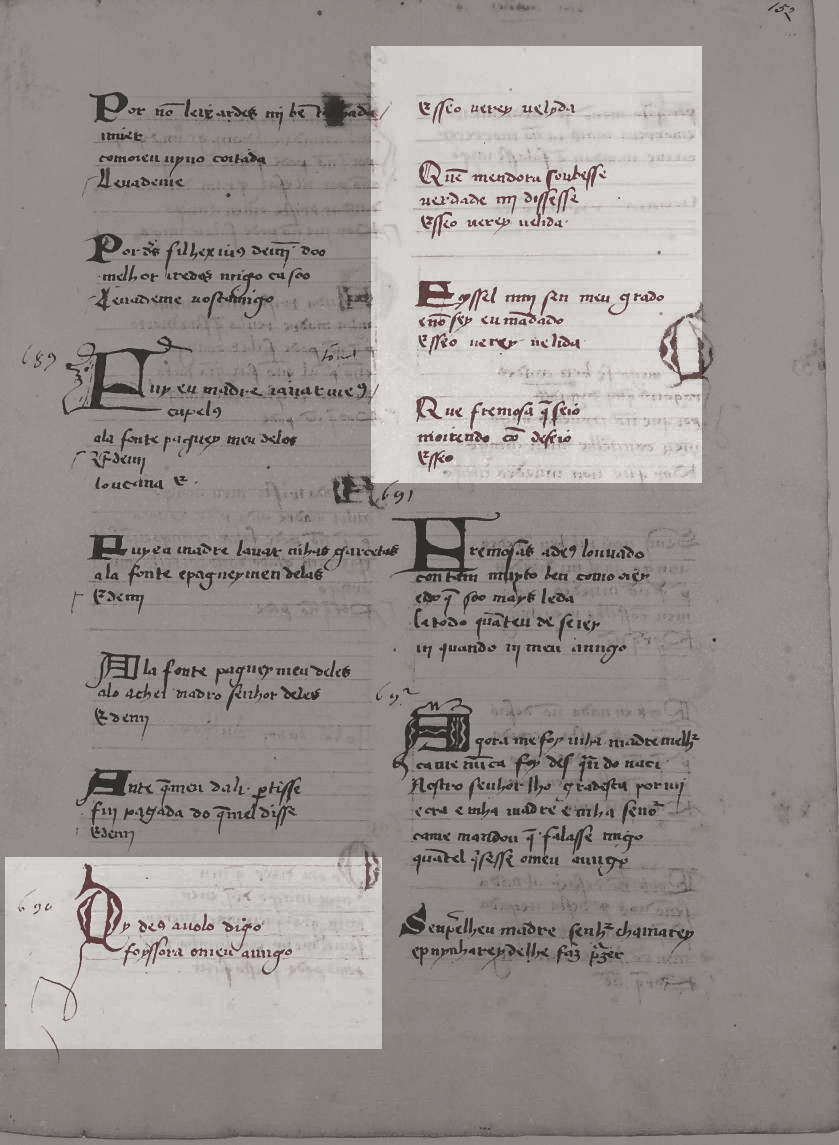 152
Por nõ leixardes mj bẽ
comoieu uyuo coitada
Leuademe
Por dš filhexiuꝯ demj̄ doo
melhor iredes migo ca soo
Leuademe uoscamigo
689
Fuy eu madre lauar meꝯ
capelꝯ
ala fonte paguey meu delos
E demj
louçana E.
Fuy eu madre lauar mhas garcetas
ala fonte epagueymeu delas
E demj
A la fonte paguey meu deles
alo achei madro senhor deles
E demj
Ante q̄meu dali ꝑtisse
fuy pagada do q̄mel disse
E demj
690
Oy deꝯ auolo digo
foyssora omeu amigo
Esseo uerey uelyda
Quē mendora soubesse
uerdade mj dissesse
Esseo uerey uelida
Foyssel mj sen meu grado
enõ sey eu mādado
Esseo uerey uelida
Que fremosa q̄ seio
moirendo cõ deseio
Esseo
691
Fremosas adeꝯ louuado
con tam muyto ben como oiey
edo q̄ soo mays leda
ca todo quãteu deseiey
ui quando ui meu amigo
692
Agora me foy mha madre melhꝛ
ca me nūca foy des q̄n do naci
Nostro senhor lho gradesca por mj
e ora e mha madre e mha senoꝛ
came mandou q̄ falasse migo
quātel q̄sesse omeu amigo
Senp̄elheu madre senhꝛ chamarey
epuynhareydelhe faz̄ p̄zer